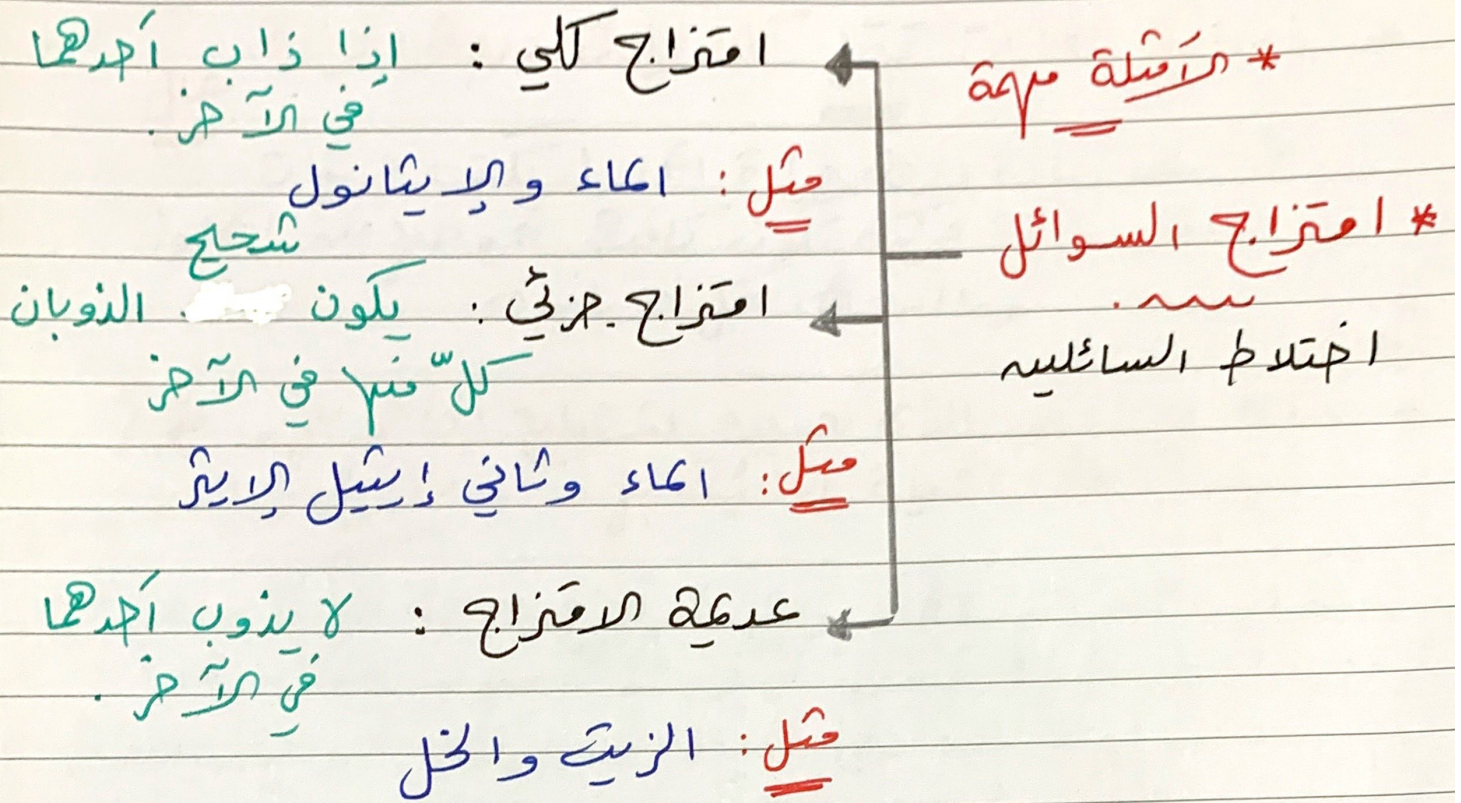 * الأمثلة مهمة
* امتزاج السوائل
اختلاط السائلين
امتزاج كلي : إذا ذاب أحدهما
في الآخر.
مثل : الماء والإيثانول
شحيح
امتزاج جزئي : يكون الذوبان
كلّ منها في الآخر
مثل : الماء وثاني إيثيل الإيثر
عديمة الامتزاج : لا يذوب أحدهما
في الآخر.
مثل : الزيت والخل